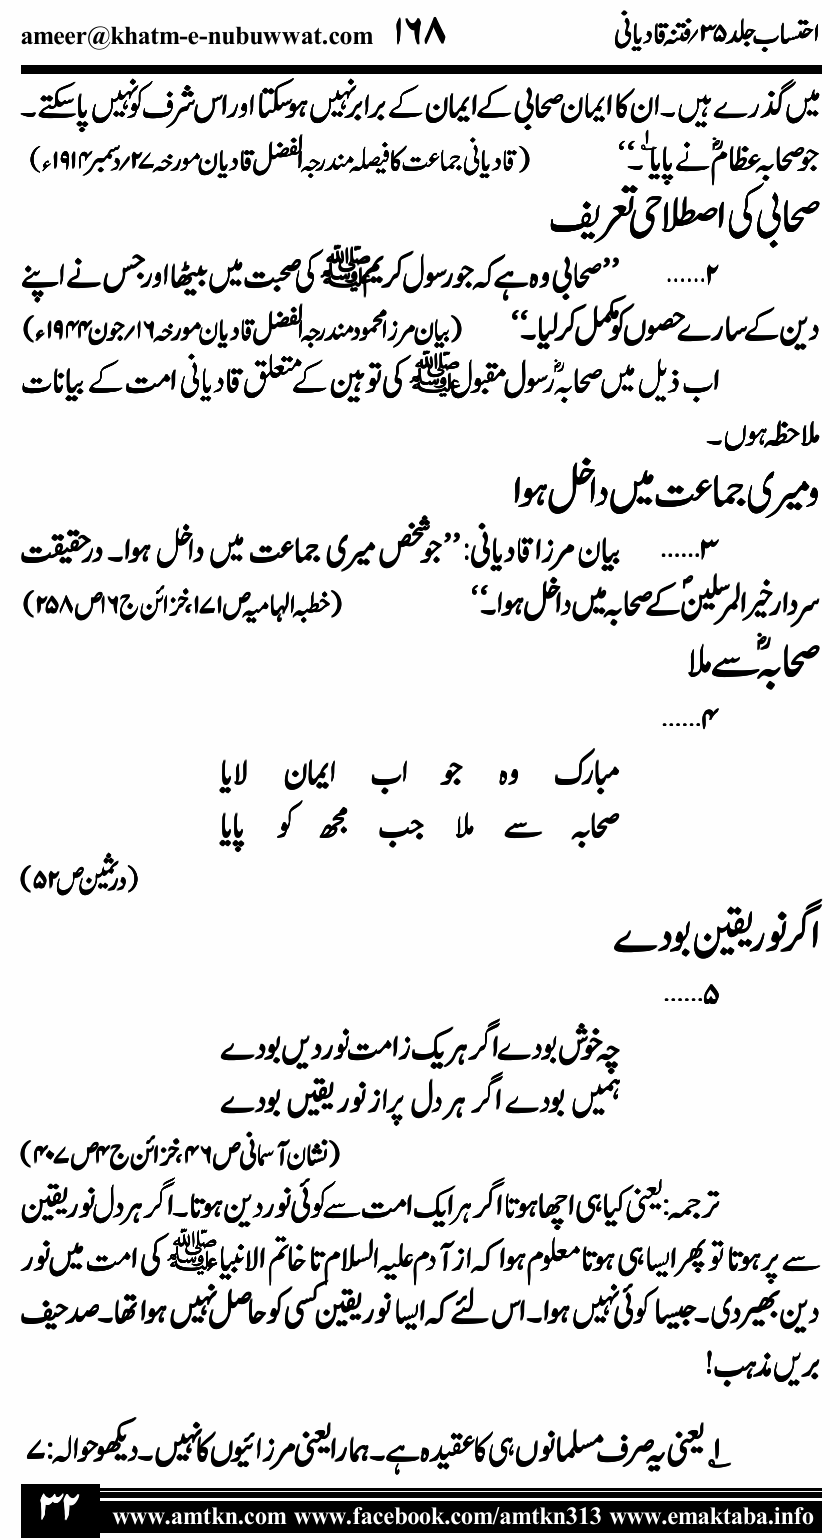 احتساب جلد ۳۵؍ فتنہ قادیانی ۱۶۸ ameer@khatm-e-nubuwwat.com
میں گذرے ہیں۔ ان کا ایمان صحابی کے ایمان کے برابر نہیں ہوسکتا اور اس شرف کو نہیں پاسکتے۔
جو صحابہ عظامؓ نے پایا۱۔‘‘ (قادیانی جماعت کا فیصلہ مندرجہ الفضل قادیان مورخہ ۲۷؍دسمبر ۱۹۱۴ء)
صحابی کی اصطلاحی تعریف
۲...... ’’صحابی وہ ہے کہ جو رسول کریمﷺ کی صحبت میں بیٹھا اور جس نے اپنے
دین کے سارے حصوں کو مکمل کرلیا۔‘‘ (بیان مرزا محمود مندرجہ الفضل قادیان مورخہ ۱۶؍جون ۱۹۴۴ء)
اب ذیل میں صحابہؓ رسول مقبولﷺ کی توہین کے متعلق قادیانی امت کے بیانات
ملاحظہ ہوں۔
ومیری جماعت میں داخل ہوا
۳...... بیان مرزا قادیانی: ’’جو شخص میری جماعت میں داخل ہوا۔ درحقیقت
سردار خیر المرسلینؐ کے صحابہ میں داخل ہوا۔‘‘ (خطبہ الہامیہ ص۱۷۱، خزائن ج۱۶ ص۲۵۸)
صحابہؓ سے ملا
۴......
مبارک وہ جو اب ایمان لایا
صحابہ سے ملا جب مجھ کو پایا
(درثمین ص۵۲)
اگر نور یقین بودے
۵......
چہ خوش بودے اگر ہر یک ز امت نور دیں بودے
ہمیں بودے اگر ہر دل پر از نور یقیں بودے
(نشان آسمانی ص۴۶، خزائن ج۴ ص۴۰۷)
ترجمہ: یعنی کیا ہی اچھا ہوتا اگر ہر ایک امت سے کوئی نور دین ہوتا۔ اگر ہر دل نور یقین
سے پر ہوتا تو پھر ایسا ہی ہوتا معلوم ہوا کہ از آدم علیہ السلام تا خاتم الانبیاءﷺ کی امت میں نور
دین بھیر دی۔ جیسا کوئی نہیں ہوا۔ اس لئے کہ ایسا نور یقین کسی کو حاصل نہیں ہوا تھا۔ صد حیف
بریں مذہب!
۱؎ یعنی یہ صرف مسلمانوں ہی کا عقیدہ ہے۔ ہمارا یعنی مرزائیوں کا نہیں۔ دیکھو حوالہ: ۷
۳۲ www.amtkn.com www.facebook.com/amtkn313 www.emaktaba.info